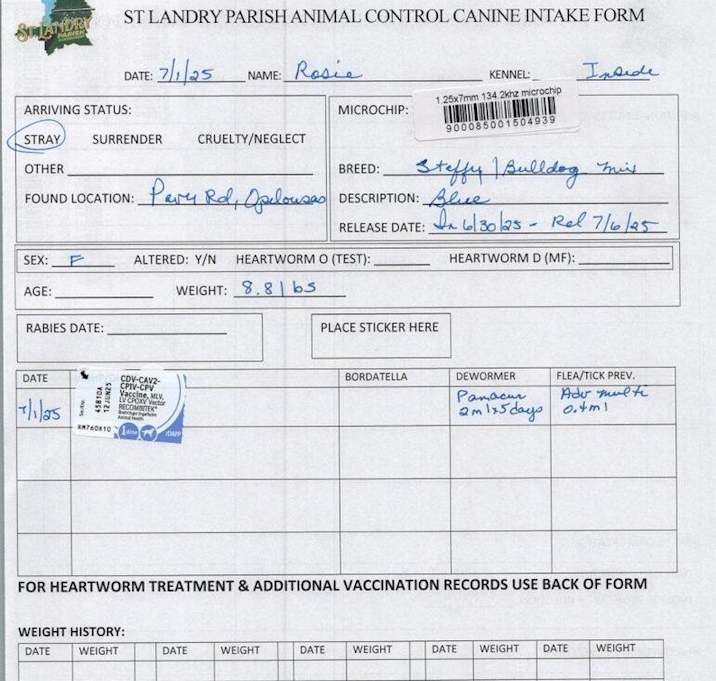 ST LANDRY PARISH
ST LANDRY PARISH ANIMAL CONTROL CANINE INTAKE FORM
DATE: 7/1/25 NAME: Rosie KENNEL: Inside
ARRIVING STATUS:
STRAY SURRENDER CRUELTY/NEGLECT
OTHER
FOUND LOCATION: Pavy Rd, Opelousas
MICROCHIP: 1.25x7mm 134.2khz microchip
900085001504939
BREED: Staffy / Bulldog mix
DESCRIPTION: Blue
RELEASE DATE: In 6/30/25 - Rel 7/6/25
SEX: F ALTERED: Y/N HEARTWORM O (TEST): HEARTWORM D (MF):
AGE: WEIGHT: 8.8 lbs
RABIES DATE: PLACE STICKER HERE
DATE BORDATELLA DEWORMER FLEA/TICK PREV.
7/1/25
CDV-CAV2-
CPIV-CPV
Vaccine, MLV,
LV CPOXV Vector
RECOMBITEK
Boehringer Ingelheim
Animal Health
45810A
12 JUN25
1 dose
Panacur
2ml x5days
Adv multi
0.4ml
FOR HEARTWORM TREATMENT & ADDITIONAL VACCINATION RECORDS USE BACK OF FORM
WEIGHT HISTORY:
DATE WEIGHT DATE WEIGHT DATE WEIGHT DATE WEIGHT DATE WEIGHT